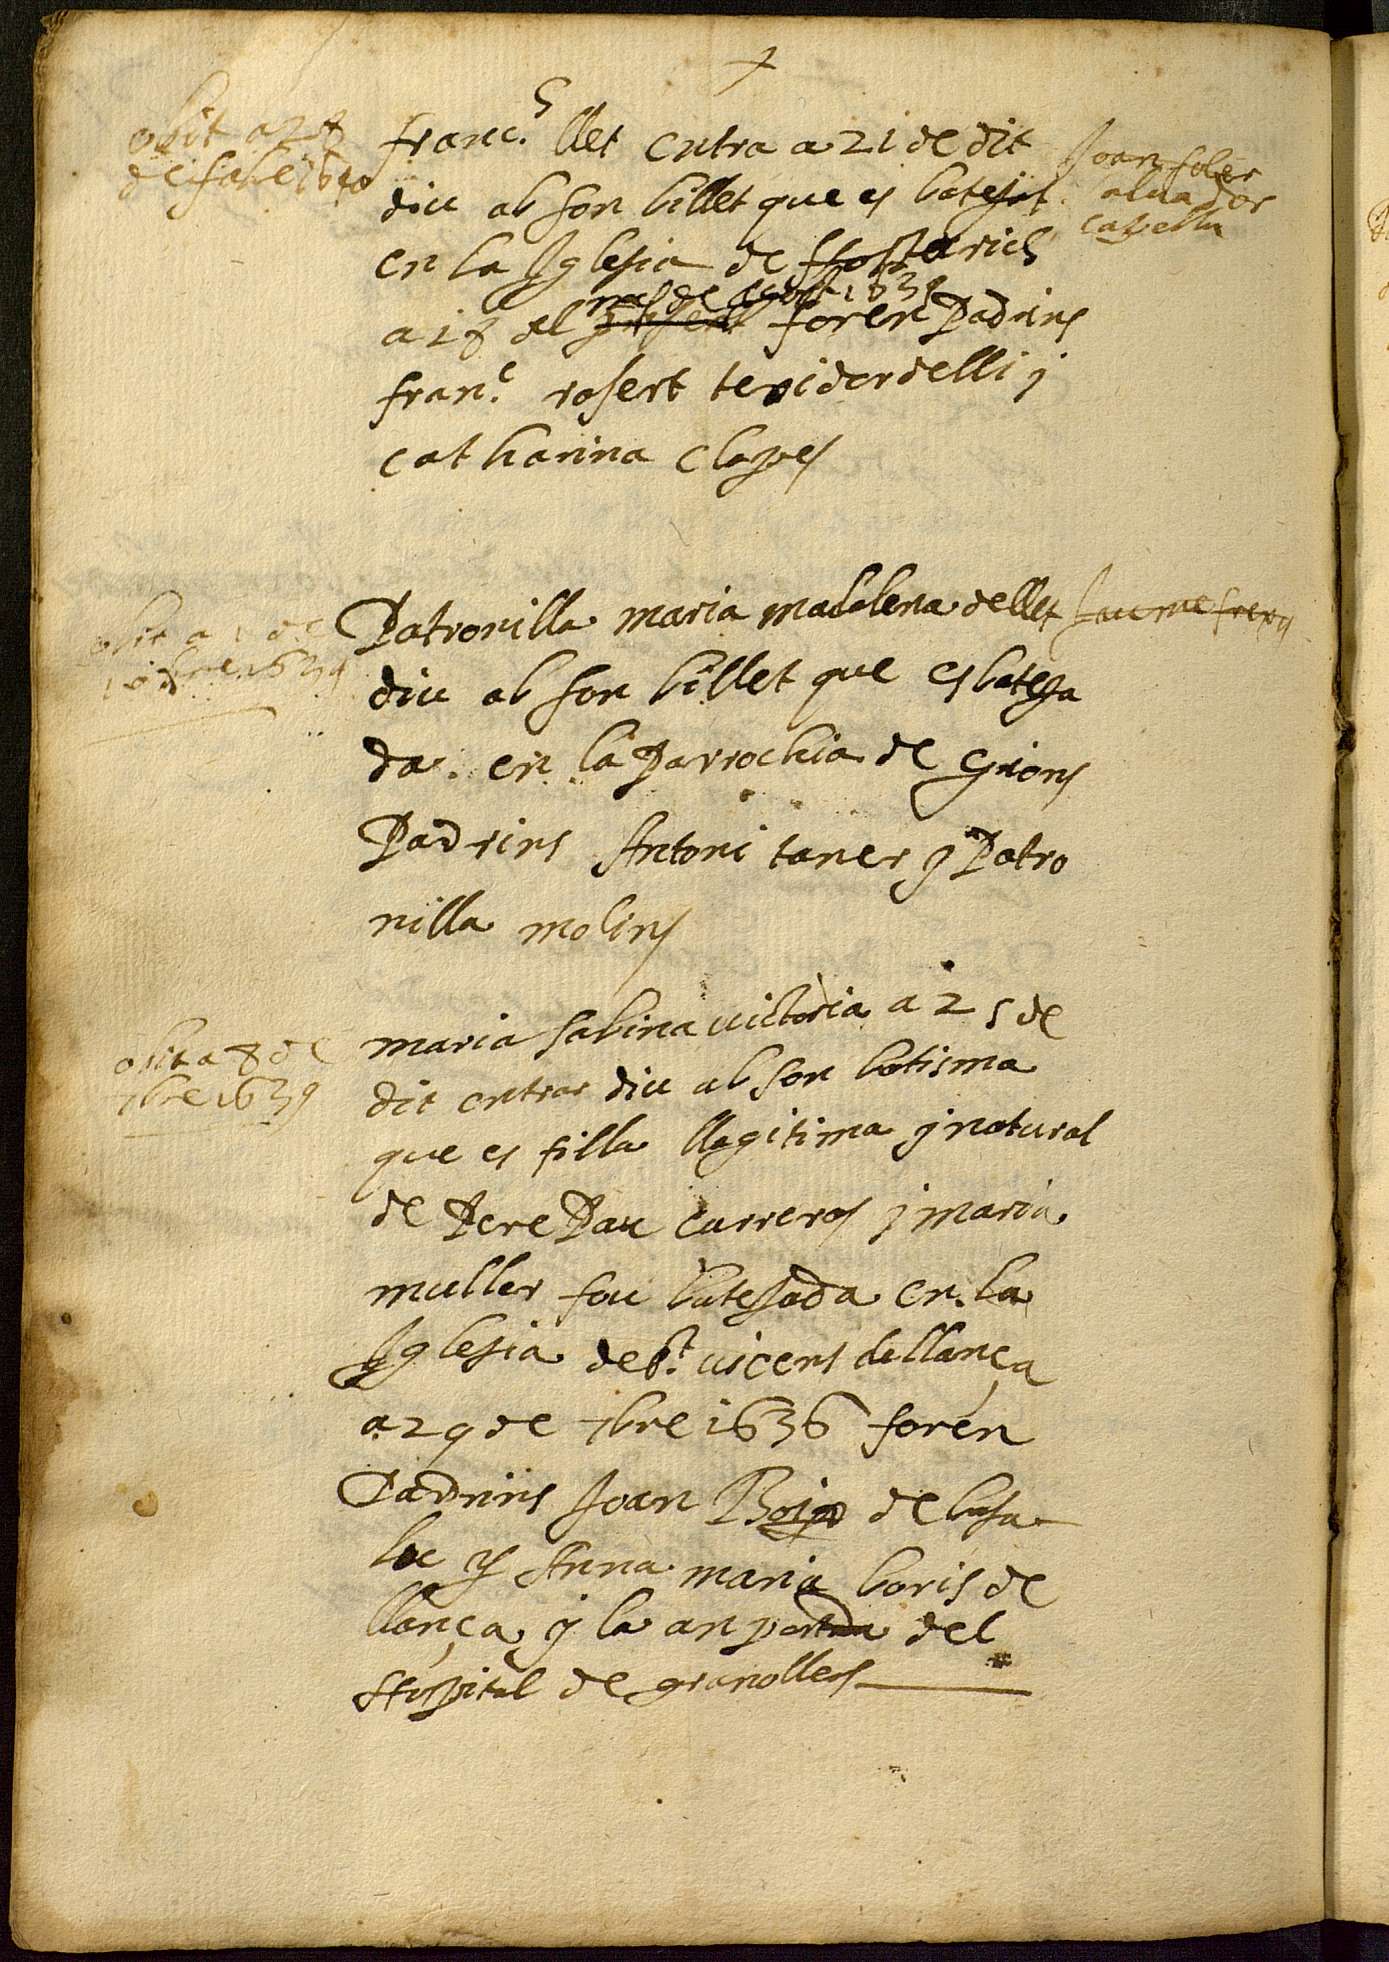 obit a 27
de fabe 1640
franc.s llet entra a 21 de dit
diu ab son billet que es batejat
en la Iglesia de Hostarich
a 18 del present mes de agost 1639 foren Padrins
fran.c rosert texidor delli j
catharina clapes
Joan soler
capella
obit a 1 de
10bre 1639
Patronilla maria madalena dellet
Jaume frexa
diu ab son billet que es bateja
da en la Parrochia de Grions
Padrins Antoni taner y Patro
nilla molins
obit a 8 de
7bre 1639
maria sabina victoria a 25 de
dit entrar diu ab son batisma
que es filla llagitima y natural
de Pere Pau carreras j maria
muller fou batejada en la
Iglesia de St vicens de llança
a 29 de 7bre 1636 foren
Padrins Joan de basa
lu y Anna maria boris de
llança y la an portada del
Hospital de granollers